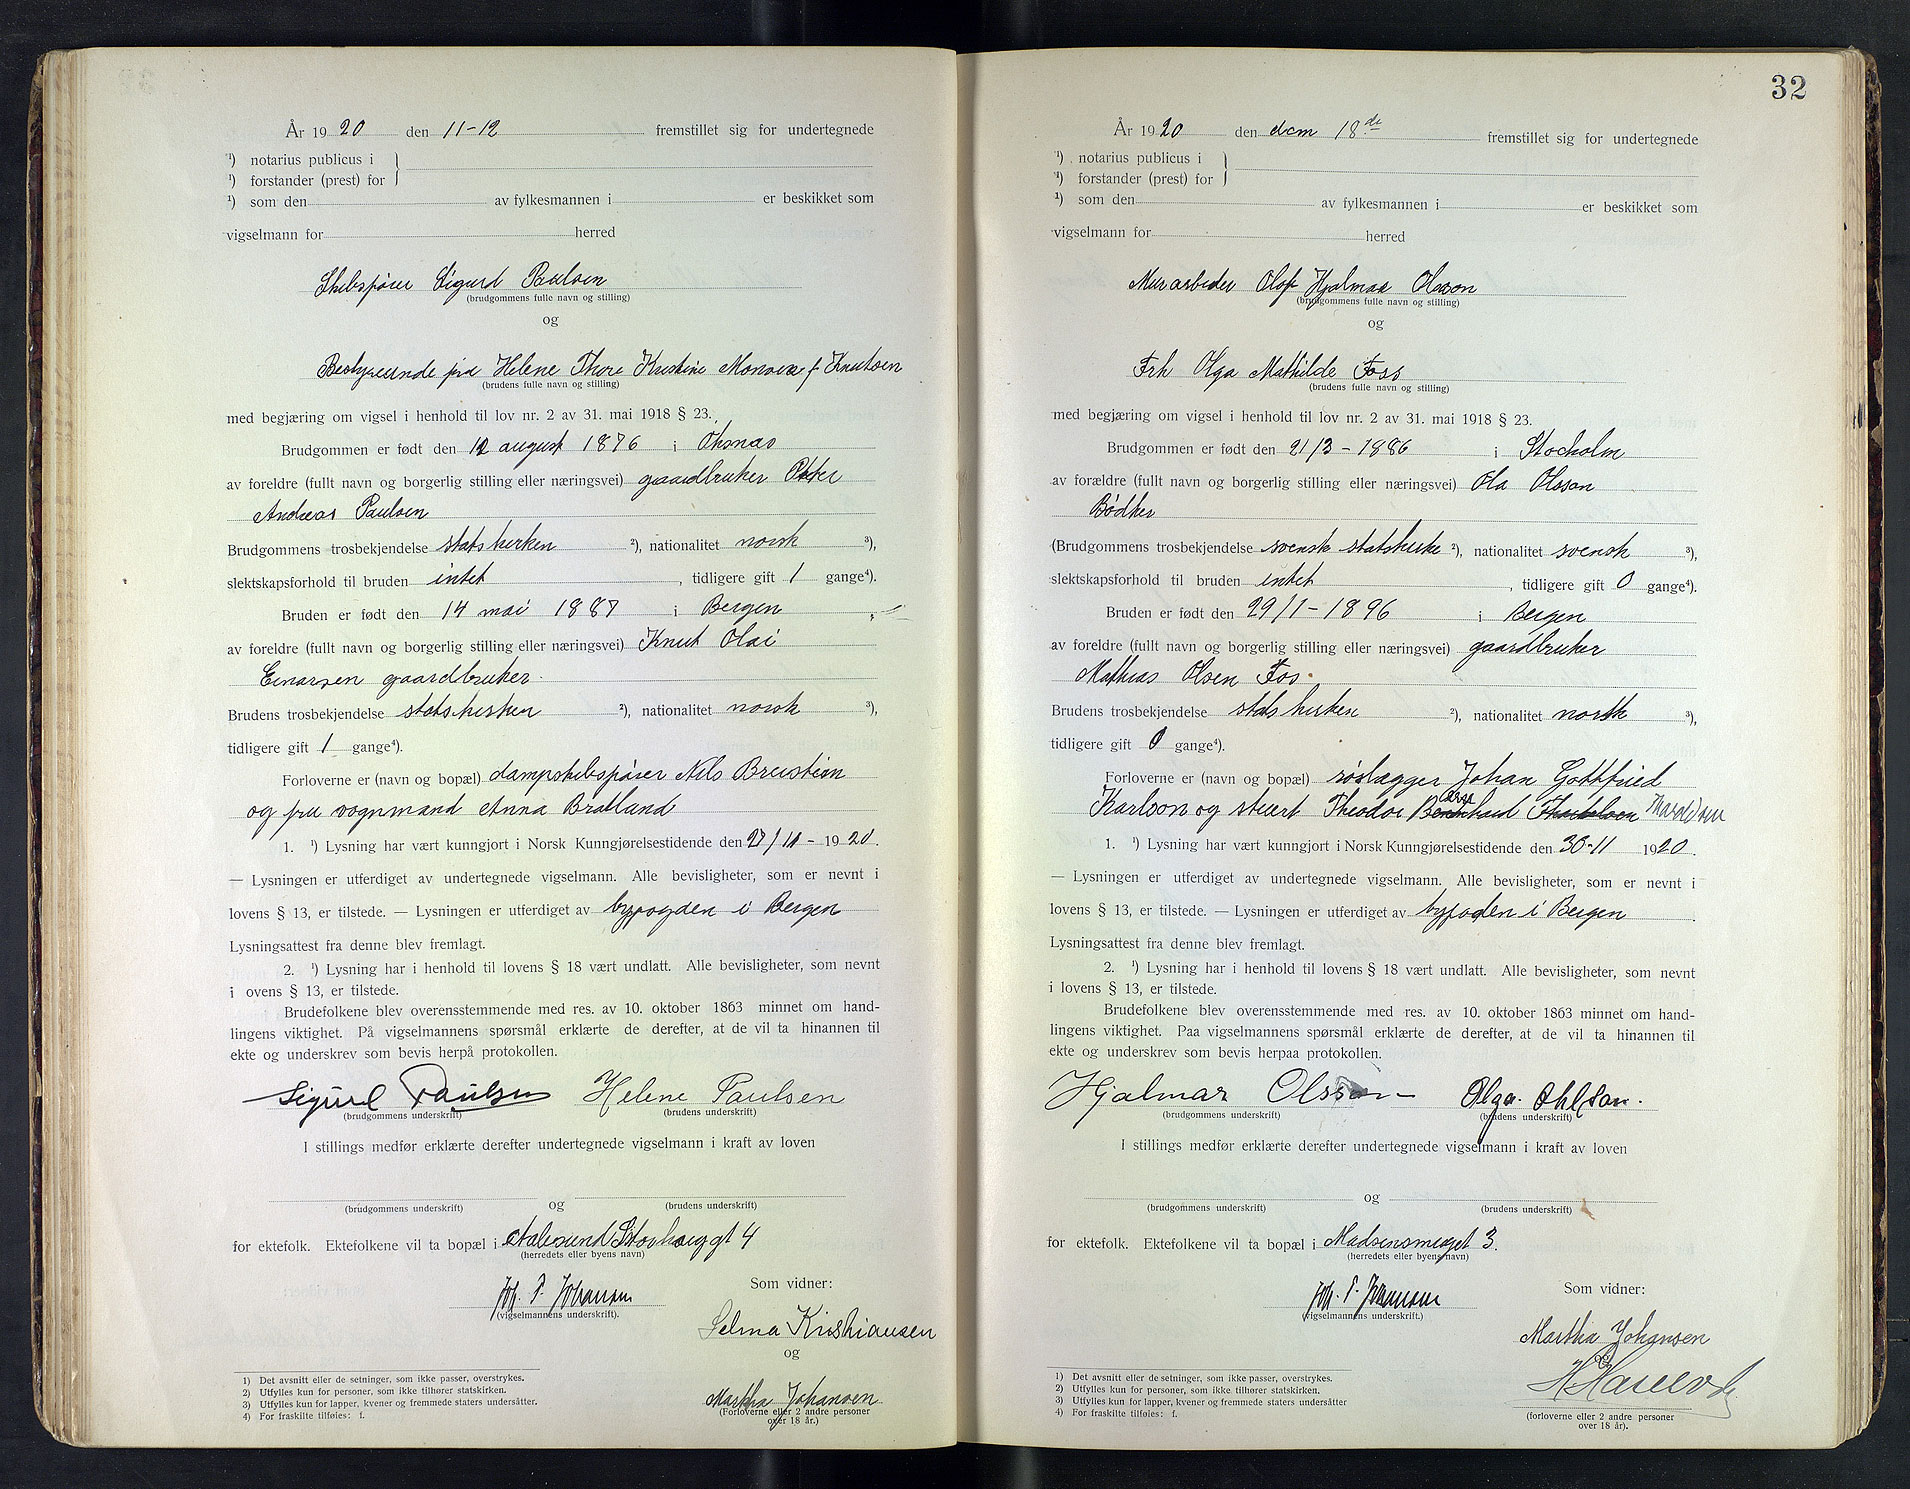 År 19 20 den 11-12 fremstillet sig for undertegnede
¹) notarius publicus i
¹) forstander (prest) for
¹) som den av fylkesmannen i er beskikket som
vigselmann for herred
Skibsfører Sigurd Paulsen
(brudgommens fulle navn og stilling)
og
Bestyrerinde fru Helene Thora Kristine Monsen f. Knutsen
(brudens fulle navn og stilling)
med begjæring om vigsel i henhold til lov nr. 2 av 31. mai 1918 § 23.
Brudgommen er født den 12 august 1876 i Øksnæs
av foreldre (fullt navn og borgerlig stilling eller næringsvei) gaardbruker Peter
Andreas Paulsen
Brudgommens trosbekjendelse statskirken ²), nationalitet norsk ³),
slektskapsforhold til bruden intet , tidligere gift 1 gange⁴).
Bruden er født den 14 mai 1887 i Bergen ,
av foreldre (fullt navn og borgerlig stilling eller næringsvei) Knut Olai
Einarsen gaardbruker.
Brudens trosbekjendelse statskirken ²), nationalitet norsk ³),
tidligere gift 1 gange⁴).
Forloverne er (navn og bopæl) dampskibsfører Nils Breistein
og fru vognmand Anna Bratland
1. ¹) Lysning har vært kunngjort i Norsk Kunngjørelsestidende den 27/11 - 1920.
— Lysningen er utferdiget av undertegnede vigselmann. Alle bevisligheter, som er nevnt i
lovens § 13, er tilstede. — Lysningen er utferdiget av byfogden i Bergen
Lysningsattest fra denne blev fremlagt.
2. ¹) Lysning har i henhold til lovens § 18 vært undlatt. Alle bevisligheter, som nevnt
i ovens § 13, er tilstede.
Brudefolkene blev overensstemmende med res. av 10. oktober 1863 minnet om hand-
lingens viktighet. På vigselmannens spørsmål erklærte de derefter, at de vil ta hinannen til
ekte og underskrev som bevis herpå protokollen.
Sigurd Paulsen Helene Paulsen
(brudgommens underskrift) (brudens underskrift)
I stillings medfør erklærte derefter undertegnede vigselmann i kraft av loven
og
(brudgommens underskrift) (brudens underskrift)
for ektefolk. Ektefolkene vil ta bopæl i Aalesund Storhauggt 4
(herredets eller byens navn)
Joh. P. Johansen
(vigselmannens underskrift).
Som vidner:
Selma Kristiansen
og
Martha Johansen
(Forloverne eller 2 andre personer
over 18 år.)
1) Det avsnitt eller de setninger, som ikke passer, overstrykes.
2) Utfylles kun for personer, som ikke tilhører statskirken.
3) Utfylles kun for lapper, kvener og fremmede staters undersåtter.
4) For fraskilte tilføies: f.
32
År 1920 den dcm 18de fremstillet sig for undertegnede
¹) notarius publicus i
¹) forstander (prest) for
¹) som den av fylkesmannen i er beskikket som
vigselmann for herred
Murarbeider Olof Hjalmar Olsson
(brudgommens fulle navn og stilling)
og
Frk Olga Mathilde Foss
(brudens fulle navn og stilling)
med begjæring om vigsel i henhold til lov nr. 2 av 31. mai 1918 § 23.
Brudgommen er født den 21/3 - 1886 i Stocholm
av forældre (fullt navn og borgerlig stilling eller næringsvei) Ola Olsson
Bødker
(Brudgommens trosbekjendelse svensk statskirke ²), nationalitet svensk ³),
slektskapsforhold til bruden intet , tidligere gift 0 gange⁴).
Bruden er født den 29/1 - 1896 i Bergen
av foreldre (fullt navn og borgerlig stilling eller næringsvei) gaardbruker
Mathias Olsen Fos.
Brudens trosbekjendelse statskirken ²), nationalitet norsk ³),
tidligere gift 0 gange⁴).
Forloverne er (navn og bopæl) rørlægger Johan Gottfried
Karlson og stuert Theodor
1. ¹) Lysning har vært kunngjort i Norsk Kunngjørelsestidende den 30-11 1920.
— Lysningen er utferdiget av undertegnede vigselmann. Alle bevisligheter, som er nevnt i
lovens § 13, er tilstede. — Lysningen er utferdiget av byfoden i Bergen .
Lysningsattest fra denne blev fremlagt.
2. ¹) Lysning har i henhold til lovens § 18 vært undlatt. Alle bevisligheter, som nevnt
i lovens § 13, er tilstede.
Brudefolkene blev overensstemmende med res. av 10. oktober 1863 minnet om hand-
lingens viktighet. Paa vigselmannens spørsmål erklærte de derefter, at de vil ta hinannen til
ekte og underskrev som bevis herpaa protokollen.
Hjalmar Olsson Olga Ohlson.
(brudgommens underskrift) (brudens underskrift)
I stillings medfør erklærte derefter undertegnede vigselmann i kraft av loven
og
(brudgommens underskrift) (brudens underskrift)
for ektefolk. Ektefolkene vil ta bopæl i Madsensmuget 3.
(herredets eller byens navn)
Joh. P. Johansen
(vigselmannens underskrift.)
Som vidner:
Martha Johansen
og
(forloverne eller 2 andre personer
over 18 år).
1) Det avsnitt eller de setninger, som ikke passer, overstrykes.
2) Utfylles kun for personer, som ikke tilhører statskirken.
3) Utfylles kun for lapper, kvener og fremmede staters undersåtter
4) For fraskilte tilføies: f.